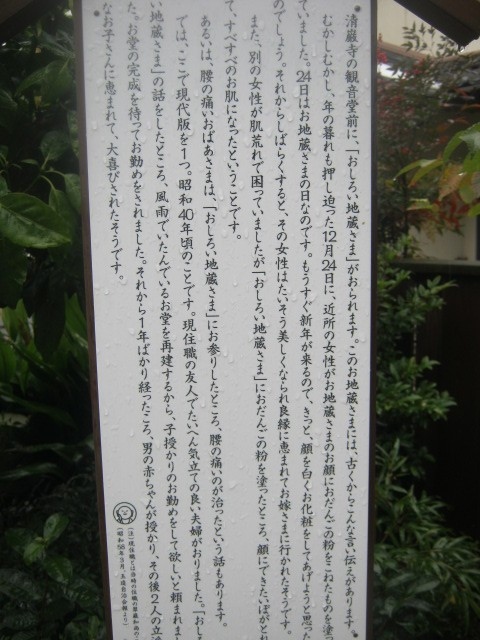 清巖寺の観音堂前に、「おしろい地蔵さま」がおられます。このお地蔵さまには、古くからこんな言い伝えがあります。
むかしむかし、年の暮れも押し迫った12月24日に、近所の女性がお地蔵さまのお顔におだんごの粉をこねたものを塗っ
ていました。24日はお地蔵さまの日なのです。もうすぐ新年が来るので、きっと、顔を白くお化粧をしてあげようと思った
のでしょう。それからしばらくすると、その女性はたいそう美しくなられ良縁に恵まれてお嫁さまに行かれたそうです。
また、別の女性が肌荒れで困っていましたが「おしろい地蔵さま」におだんごの粉を塗ったところ、顔にできたいぼがとれ
て、すべすべのお肌になったということです。
あるいは、腰の痛いおばあさまは、「おしろい地蔵さま」にお参りしたところ、腰の痛いのが治ったという話もあります。
では、ここで現代版を1つ。昭和40年頃のことです。現住職の友人でたいへん気立ての良い夫婦がおりました。「おしろ
い地蔵さま」の話をしたところ、風雨でいたんでいるお堂を再建するから、子授かりのお勤めをして欲しいと頼まれまし
た。お堂の完成を待ってお勤めをされました。それから1年ばかり経ったころ、男の赤ちゃんが授かり、その後2人の立
なお子さんに恵まれて、大喜びされたそうです。
(注)現住職とは
昭和58年9月